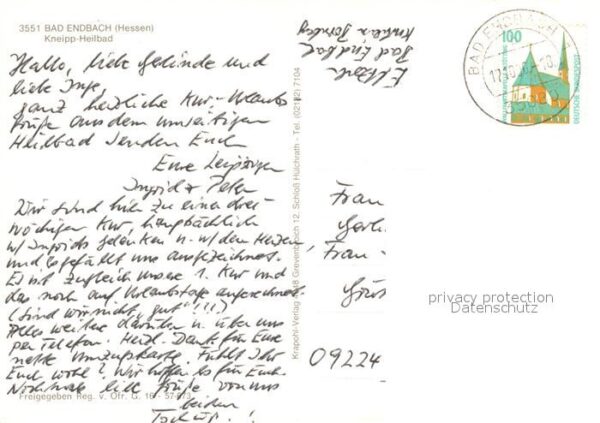 3551 BAD ENDBACH (Hessen)
Kneipp-Heilbad
Hallo, liebe Gerlinde und
liebe Inge,
ganz herzliche Kur-Urlaubs
Grüße aus dem umseitigen
Heilbad senden Euch
Eure Leipziger
Ingrid + Peter
Wir sind hier zu einer drei
wöchigen Kur, hauptsächlich
w/ Ingrids Gelenken u. w/ den Herzen,
und es gefällt uns ausgezeichnet.
Es ist zugleich unsere 1. Kur und
das noch auf Urlaubstage angerechnet
(sind wir nicht "gut"!!!)
Alles weitere darüber u. über uns
per Telefon. Herzl. Dank für Eure
nette Umzugskarte. Fühlt Ihr
Euch wohl? Wir hoffen es für Euch.
Nochmals liebe Grüße von uns
beiden
Tschüß!
Freigegeben Reg. v. Ofr. G. 16 - 57 873
Krapohl-Verlag 4048 Grevenbroich 12, Schloß Hülchrath - Tel. (02182) 7104
Bad Endbach
BAD ENDBACH
100
DEUTSCHE BUNDESPOST
Frau
Gerl.
Frau
09224
privacy protection
Datenschutz